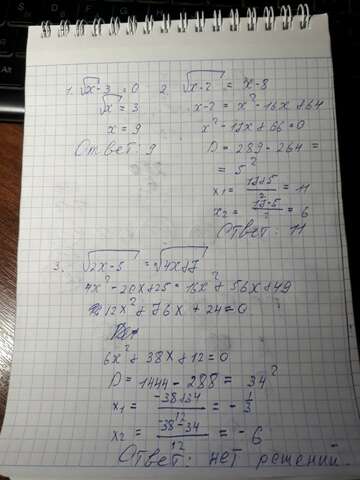 1. √x - 3 = 0
√x = 3
x = 9
Ответ: 9
2. √x-2 = x-8
x-2 = x² - 16x + 64
x² - 17x + 66 = 0
D = 289 - 264 =
= 5²
x₁ = (17+5)/2 = 11
x₂ = (17-5)/2 = 6
Ответ: 11
3. √2x-5 = √4x+7
4x² - 20x + 25 = 16x² + 56x + 49
12x² + 76x + 24 = 0
6x² + 38x + 12 = 0
D = 1444 - 288 = 34²
x₁ = (-38+34)/12 = -1/3
x₂ = (-38-34)/12 = -6
Ответ: нет решений.